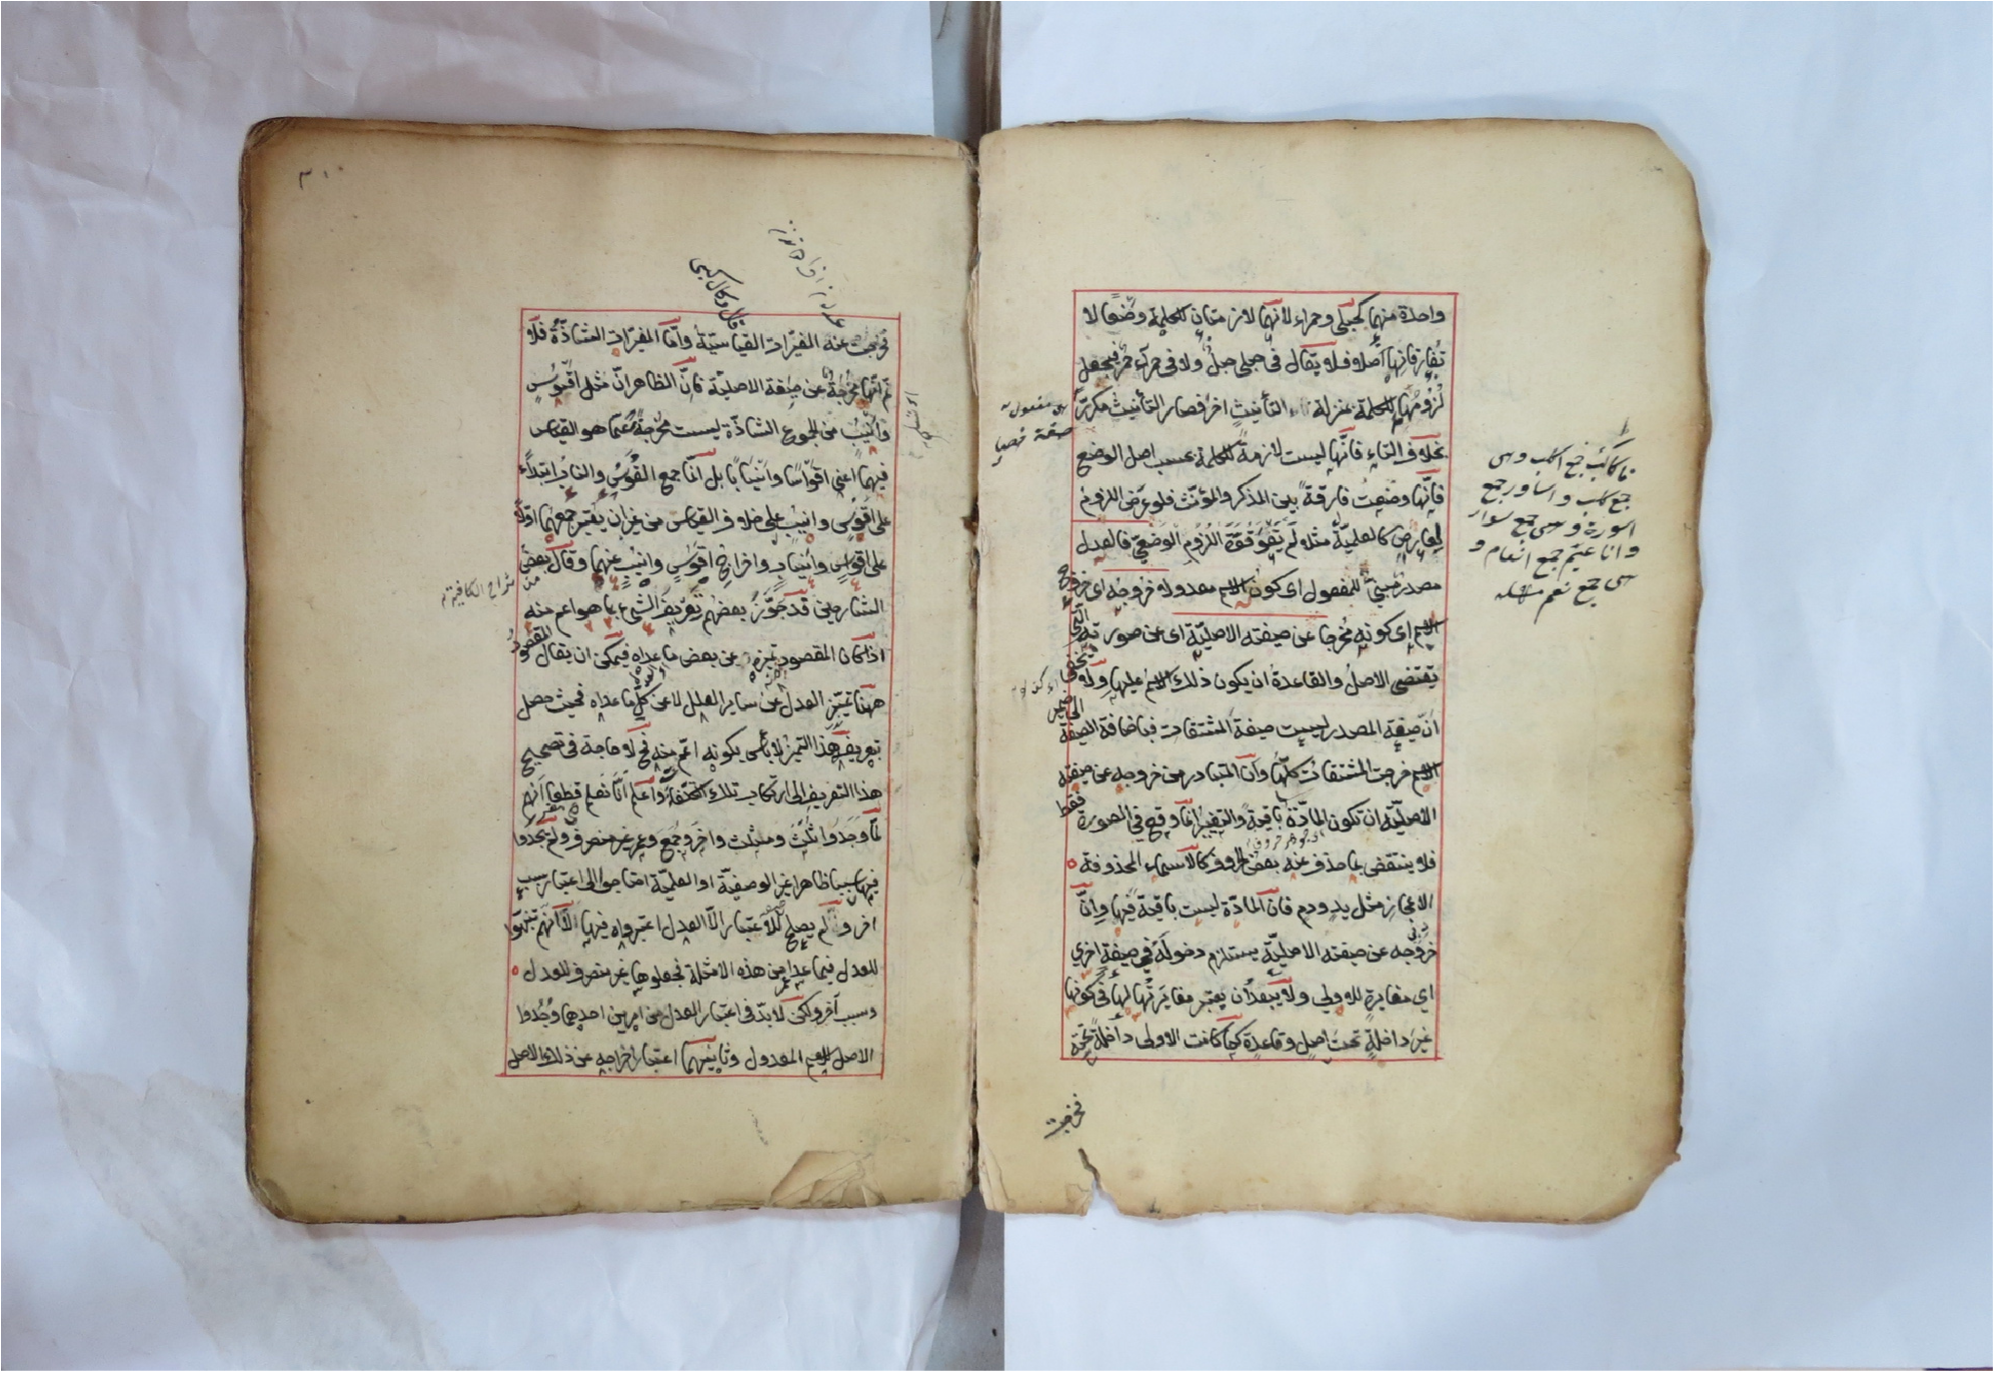 واحدة منهما كحبلى وحمراء لانهما لازمتان للكلمة وضعا لا
تفارقانها اصلا فلا يقال فى حبلى حبل ولا فى حمراء حمر فيجعل
لزومهما للكلمة بمنزلة التأنيث اخر فصار التأنيث مكررا
بخلاف التاء فانها ليست لازمة للكلمة بحسب اصل الوضع
فانها وضعت فارقة بين المذكر والمؤنث فلو عرض اللزوم
لعارض كالعلمية مثلا لم يقو قوة اللزوم الوضعى فالعدل
مصدر مبنى للمفعول اى كون الاسم معدولا خروجه اى خروج
الاسم اى كونه مخرجا عن صيغته الاصلية اى عن صورته التى
يقتضى الاصل والقاعدة ان يكون ذلك الاسم عليها ولا يخفى
ان صيغة المصدر ليست صيغة المشتقات فباضافة الصيغة الى ضمير
الاسم خرجت المشتقات كلها وان المتبادر من خروجه عن صيغته
الاصلية ان تكون المادة باقية والتغير انما وقع فى الصورة فقط
فلا ينتقض بما حذف عنه بعض الحروف كالاسماء المحذوفة
الاعجاز مثل يد ودم فان المادة ليست باقية فيها وان
خروجه عن صيغته الاصلية يستلزم دخوله فى صيغة اخرى
اى مغايرة للاولى ولا يبعد ان يعتبر مغايرتها لها فى كونها
غير داخلة تحت اصل وقاعدة كما كانت الاولى داخلة تحته
فخرجت
كاكالب جمع اكلب وهى
جمع كلب واساور جمع
اسورة وهى جمع سوار
واناعيم جمع انعام و
هى جمع نعم منهله
٣١٠
فخرجت عنه المغيرات القياسية واما المغيرات الشاذة فلا
نم انها مخرجة عن صيغة الاصلية فان الظاهر ان مثل اقوس
وانيب من الجموع الشاذة ليست مخرجة عما هو القياس
فيهما اعنى اقواسا وانيابا بل انما جمع القوس والناب ابتداء
على اقوس وانيب على خلاف القياس من غير ان يعتبر جمعهما اولا
على اقواس وانياب واخراج اقوس وانيب عنهما وقال بعض
الشارحين قد جوز بعضهم تعريف الشىء بما هو اعم منه
اذا كان المقصود تميزه عن بعض ما عداه فيمكن ان يقال المقصود
ههنا تميز العدل عن سائر العلل لا عن كل ما عداه فحيث حصل
بتعريفه هذا التميز لا بأس بكونه اعم منه فح لا حاجة فى تصحيح
هذا التعريف الى ارتكاب تلك التكلفات واعلم انا نعلم قطعا انهم
لما وجدوا ثلث ومثلث واخر وجمع وعمر غير منصرف ولم يجدوا
فيها سببا ظاهرا غير الوصفية او العلمية احتاجوا الى اعتبار سبب
اخر ولم يصلح للاعتبار الا العدل اعتبروه فيها لا انهم تنبهوا
للعدل فيما عدا عمر من هذه الامثلة فجعلوها غير منصرف للعدل
وسبب آخر ولكن لا بد فى اعتبار العدل من امرين احدهما وجود
الاصل للاسم المعدول وثانيهما اعتبار اخراجه عن ذلك الاصل
من شراح الكافية